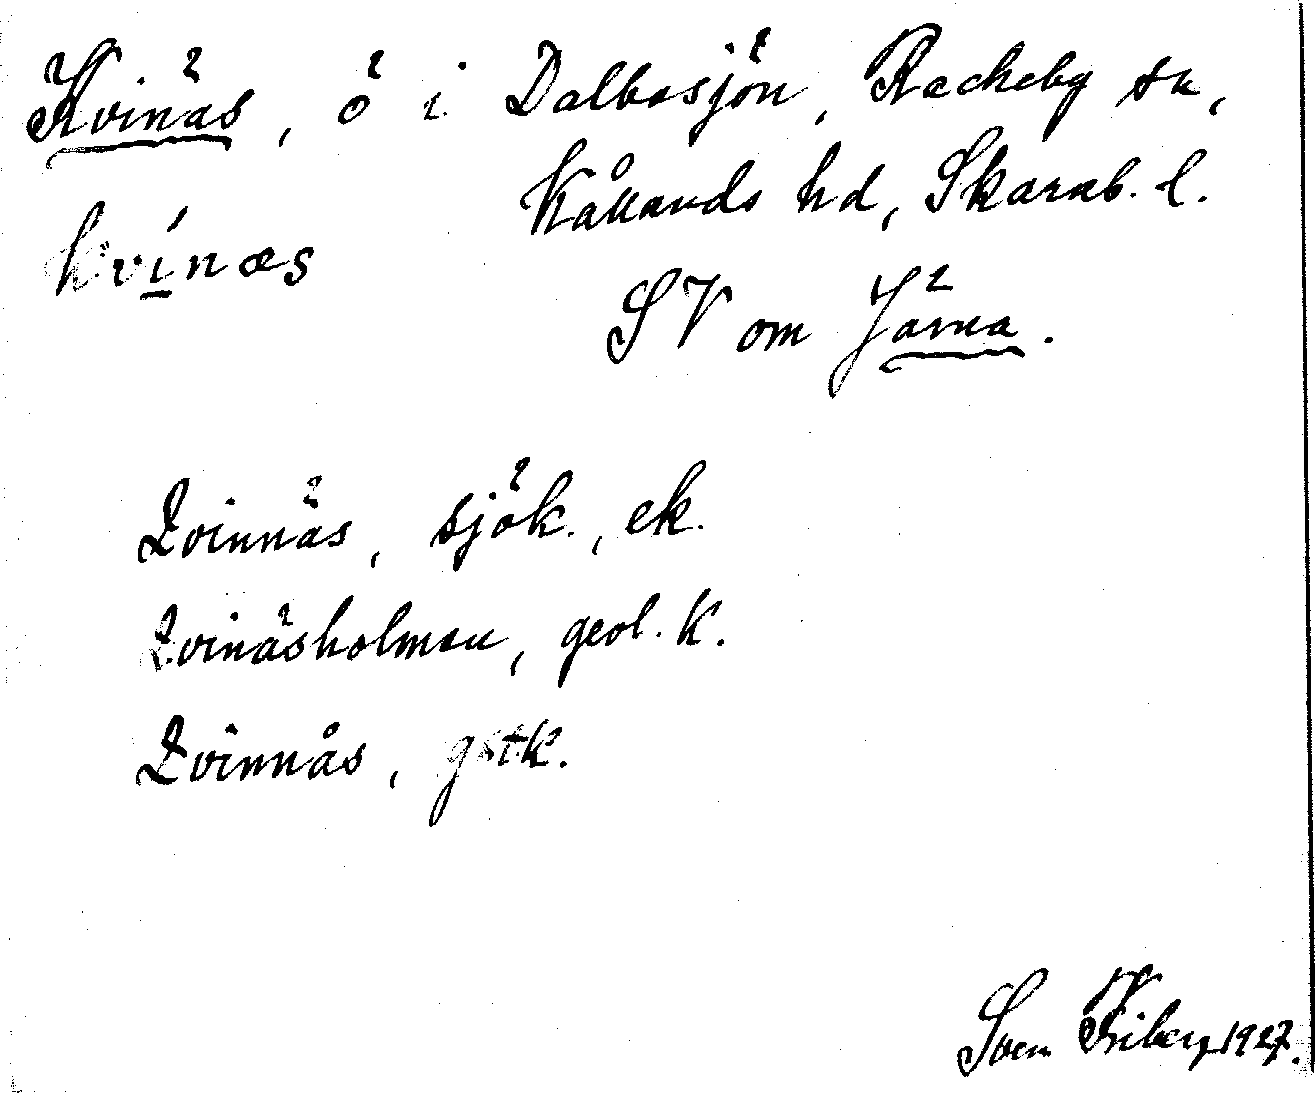 Kvinäs, ö i Dalbosjön, Rackeby sn,
Kållands hd, Skarab. l.
kvínæs
SV om Järnea.
Qvinnäs, sjök., ek.
Qvinäsholmen, geol. k.
Qvinnås, gstk.
Sven Friberg 1927.